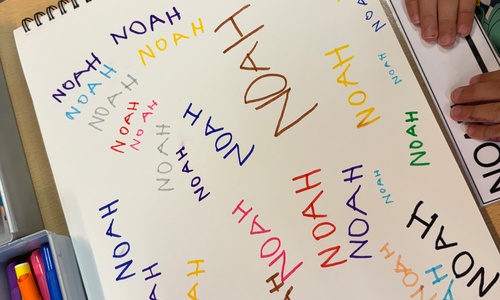 NOAH
NOAH
NOAH
NOAH
NOAH
NOAH
NOAH
NOAH
NOAH
NOAH
NOAH
NOAH
NOAH
NOAH
NOAH
NOAH
NOAH
NOAH
NOAH
NOAH
NOAH
NOAH